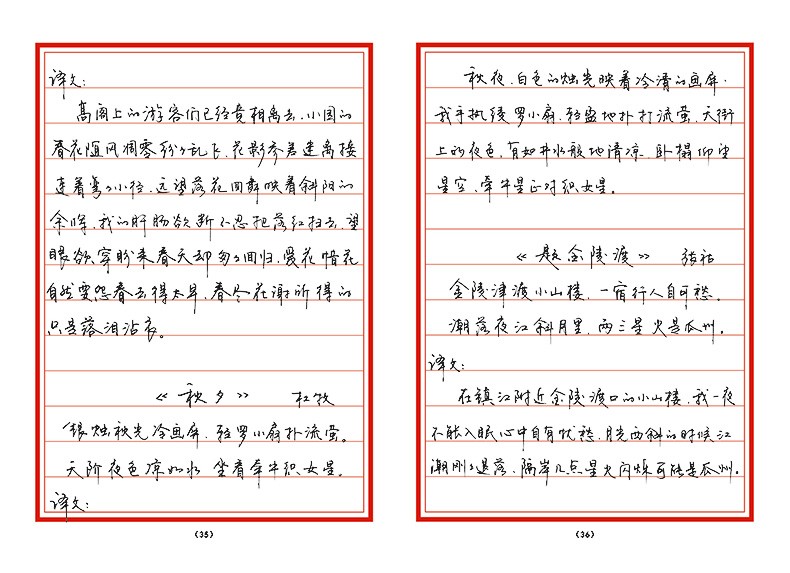 译文：
高阁上的游客们已经竟相离去，小园的
春花随风凋零纷纷乱飞，花影参差迷离接
连着弯弯小径，远望落花回舞映着斜阳的
余晖，我的肝肠欲断不忍把落红扫去，望
眼欲穿盼来春天却匆匆回归，爱花惜花
自然要怨春去得太早，春尽花谢所得的
只是落泪沾衣。
《秋夕》 杜牧
银烛秋光冷画屏，轻罗小扇扑流萤。
天阶夜色凉如水 坐看牵牛织女星。
译文：
（35）
秋夜，白色的烛光映着冷清的画屏，
我手执绫罗小扇，轻盈地扑打流萤，天街
上的夜色，有如井水般地清凉，卧榻仰望
星空，牵牛星正对织女星。
《题金陵渡》 张祜
金陵津渡小山楼，一宿行人自可愁。
潮落夜江斜月里，两三星火是瓜州。
译文：
在镇江附近金陵渡口的小山楼，我一夜
不能入眠心中自有忧愁，月光西斜的时候江
潮刚刚退落，隔岸几点星火闪烁可能是瓜州。
（36）